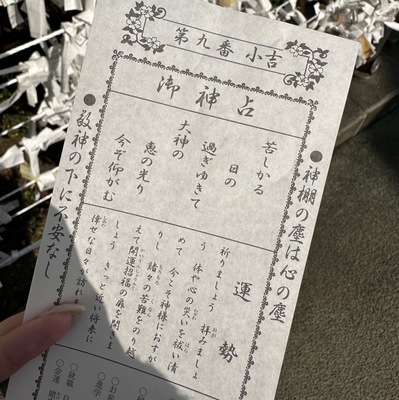 第九番 小吉
御神占
●神棚の塵は心の塵
苦しかる
日の
過ぎゆきて
大神の
恵の光り
今ぞ仰がむ
運勢
祈りましょう 拝みましょ
う 体や心の災いを祓い清
めて 今こそ神様におすが
りし 諸々の苦難をのり越
えて開運招福の扉を開きま
しょう きっと近い将来に
倖せな日々が訪れ
○お
○進学
○就職
○金運
●敬神の下に不安なし